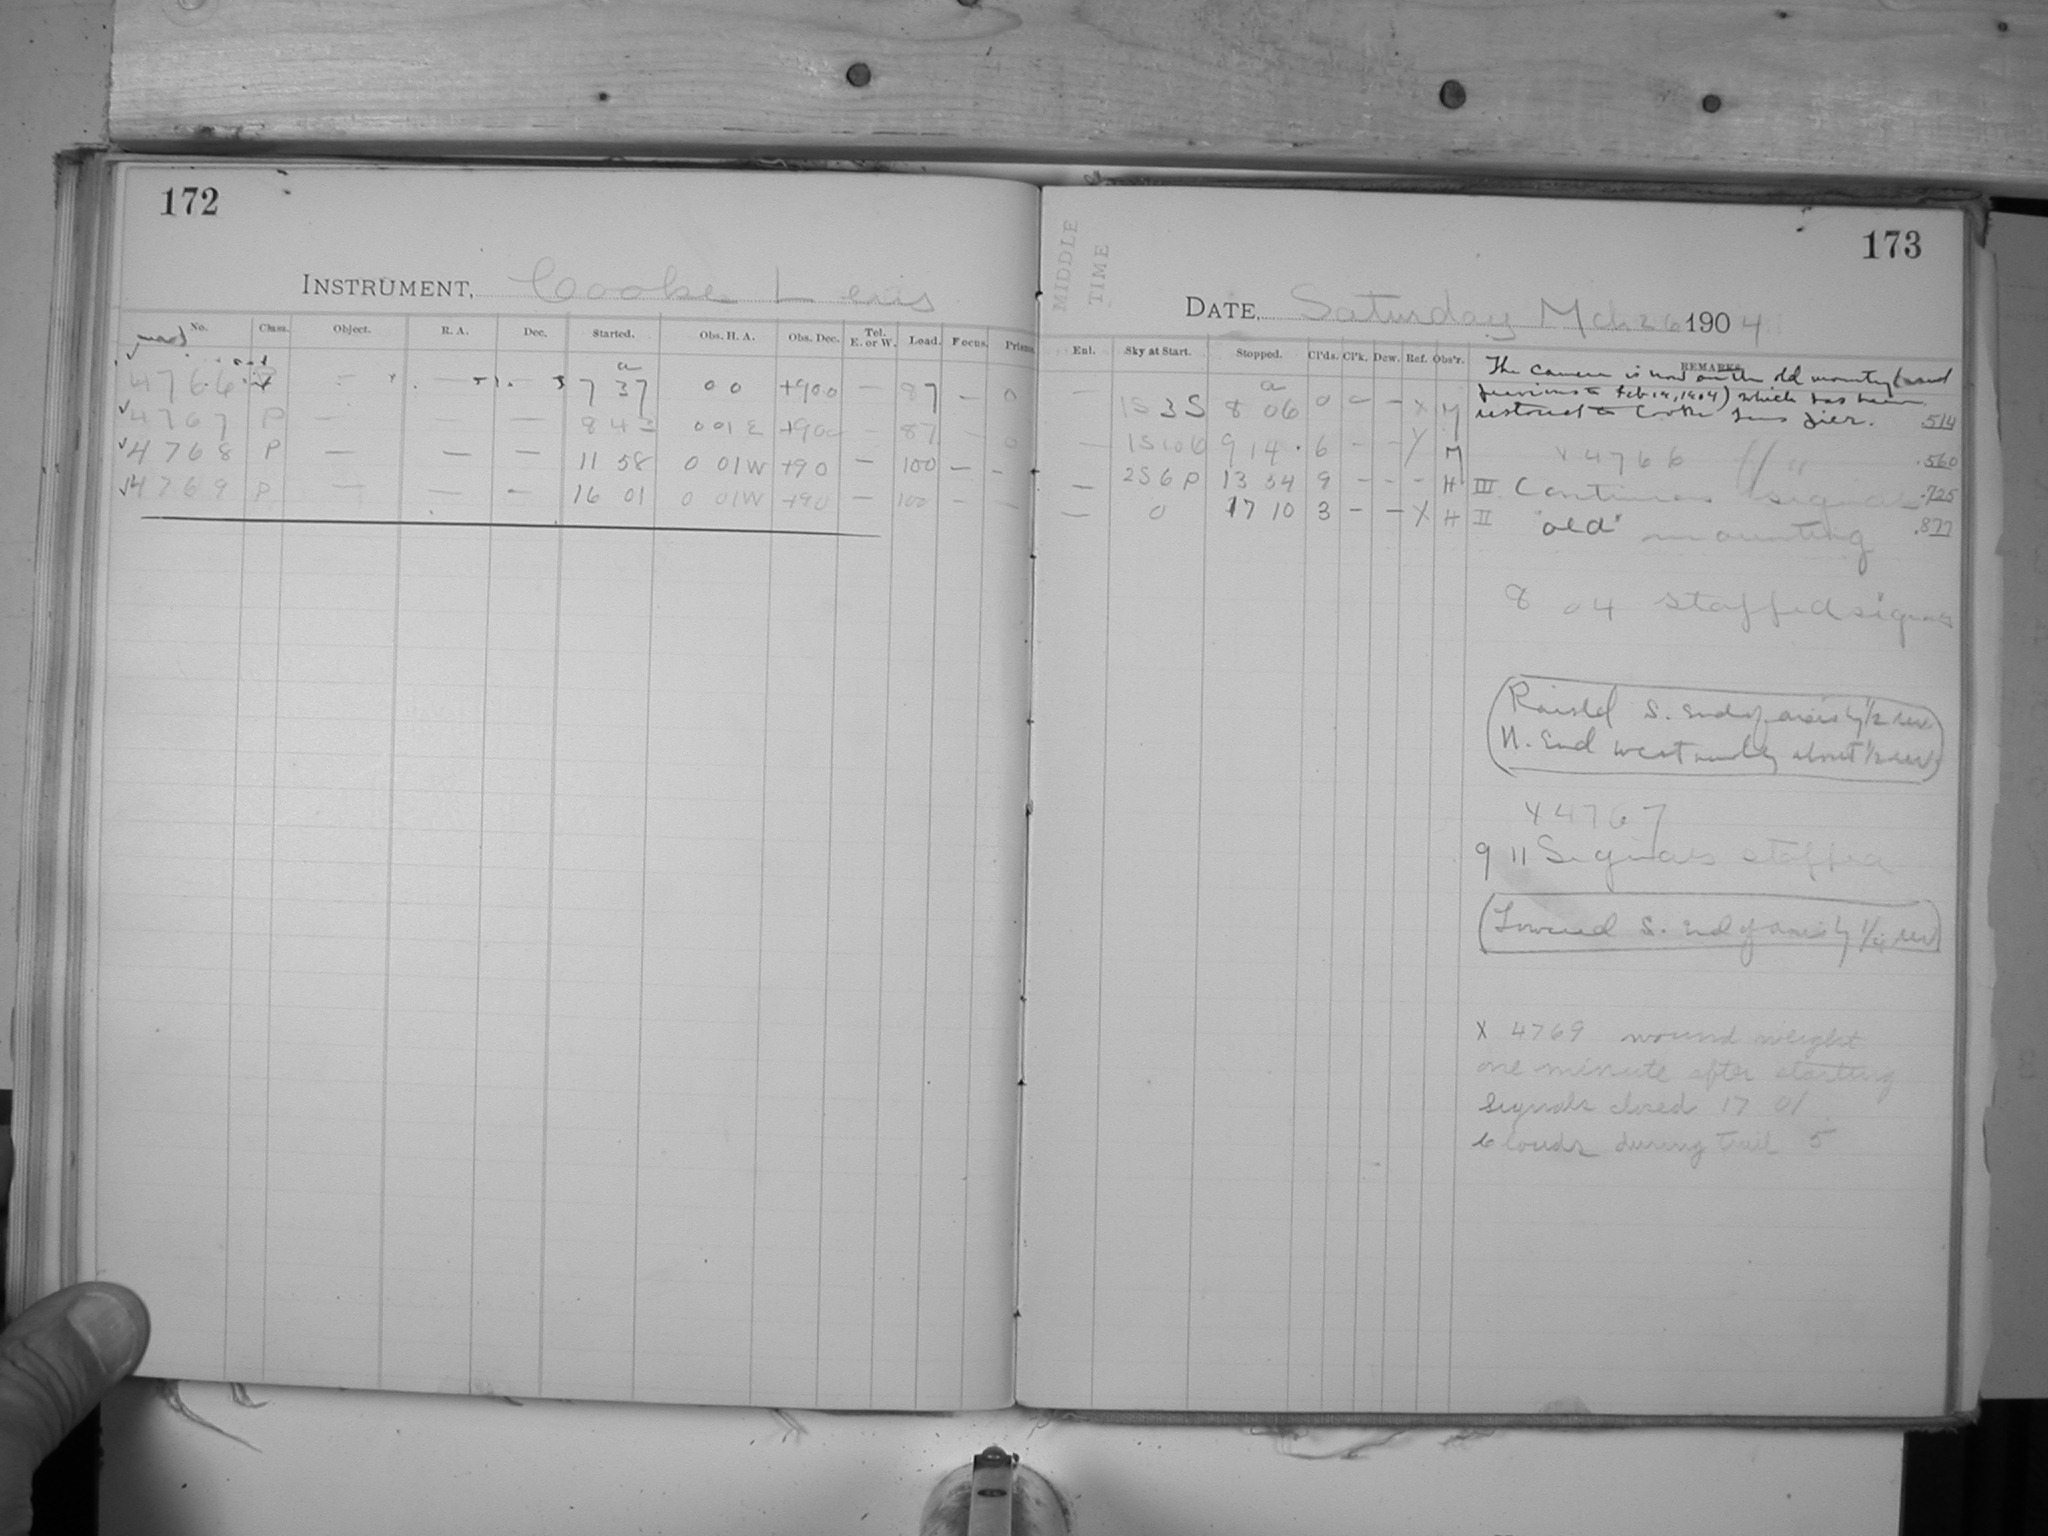 172
INSTRUMENT, Cooke Lens
No. Class. Object. R. A. Dec. Started. Obs. H. A. Obs. Dec. Tel. E. or W. Lead. Focus. Prisms.
a
4766 — 7 37 0 0 +90 0 — 87 — 0
✓ 4767 P — — — 8 43 0 01 E +90 0 — 87 — 0
✓ 4768 P — — — 11 58 0 01 W +90 — 100 — —
✓ 4769 P — — — 16 01 0 01 W +90 — 100 — —
MIDDLE
TIME
173
DATE, Saturday Mch 26 1904
Enl. Sky at Start. Stopped. Cl'ds. Cl'k. Dew. Ref. Obs'r. REMARKS.
The camera is now on the old mounting (used
previous to Feb. 19, 1904) which has been
restored to Cooke Lens pier. .514
a
— 1S 3S 8 06 0 — — X M
— 1S 10 0 9 14 6 — — / M X 4766 .560
— 2S 6 P 13 54 9 — — — H III Continuous signals .725
— 0 17 10 3 — — X H II "old" mounting .877
8 04 stopped signals
Raised S. End of axis by 1/2 rev
N. End westwardly about 1/2 rev
X 4767
9 11 Signals stopped
Lowered S. End of axis by 1/4 rev
X 4769 wound weight
one minute after starting
Signals closed 17 01
Clouds during trail 5